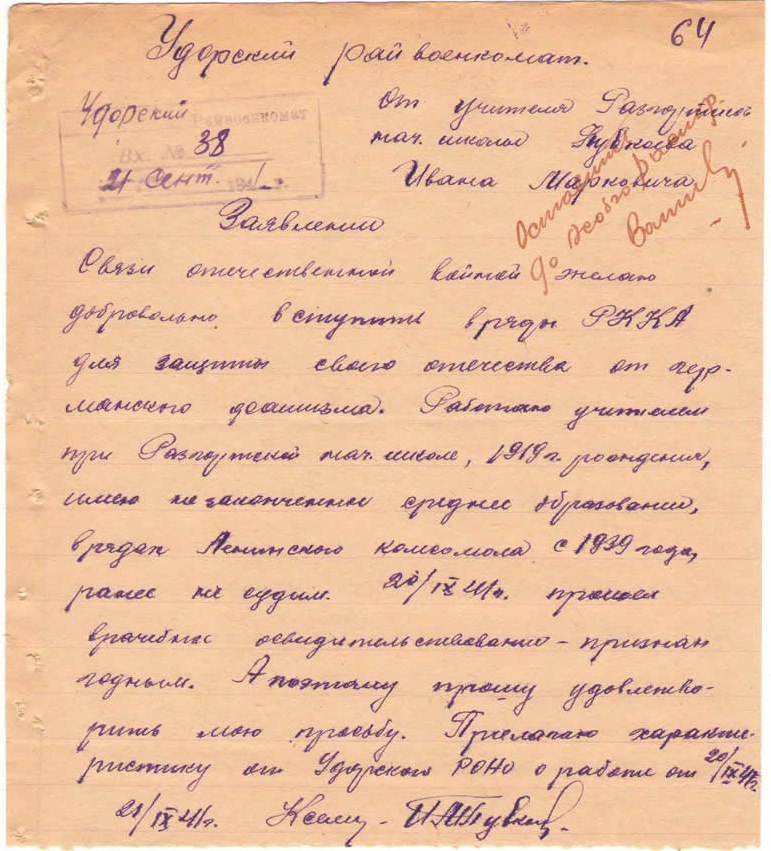 64
Удорский райвоенкомат.
Удорский Райвоенкомат
Вх. № 38
21 сент. 194 1 г.
От учителя Разгортской
нач. школы
Ивана Марковича
Оставить
до особого
Заявление
Связи отечественной войной желаю
добровольно вступить в ряды РККА
для защиты своего отечества от гер-
манского фашизма. Работаю учителем
при Разгортской нач. школе, 1919 г. рождения,
имею незаконченное среднее образование,
в рядах Ленинского комсомола с 1939 года,
ранее не судим. 20/IX 41 г. прошел
врачебное освидетельствование – признан
годным. А поэтому прошу удовлетво-
рить мою просьбу. Прилагаю характе-
ристику от Удорского РОНО о работе от 20/IX 41 г.
21/IX 41 г. К сему –